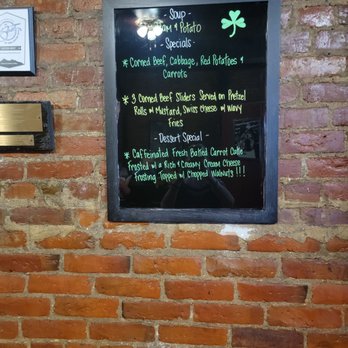 - Soup -
& Potato
- Specials -
* Corned Beef, Cabbage, Red Potatoes &
Carrots
* 3 Corned Beef Sliders Served on Pretzel
Rolls w/ Mustard, Swiss Cheese w/ Wavy
Fries
- Dessert Special -
* Caffeinated Fresh Baked Carrot Cake
Frosted w/ a Rich & Creamy Cream Cheese
Frosting Topped w/ Chopped Walnuts !!!